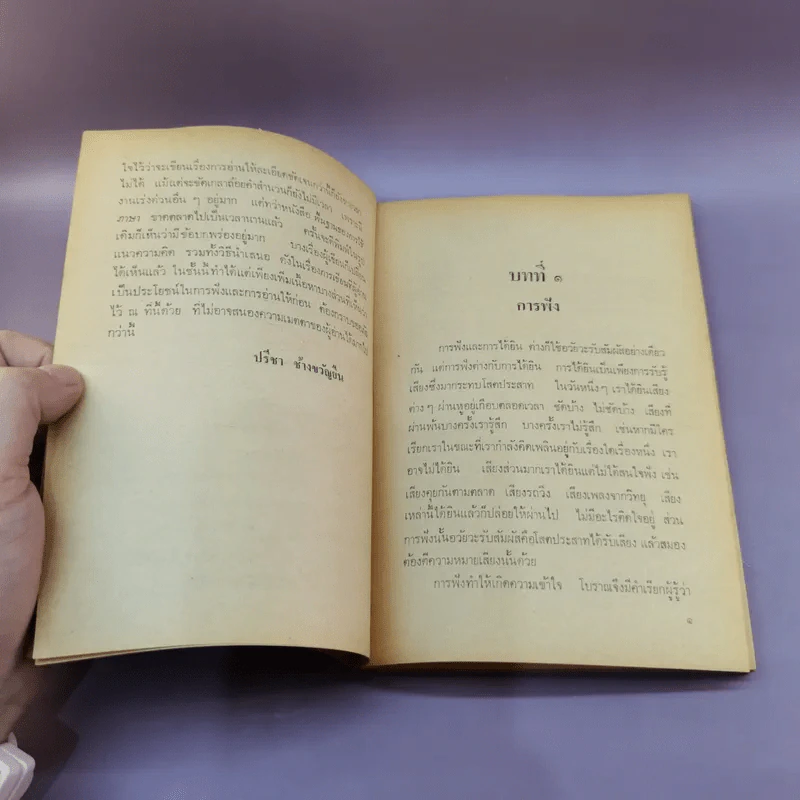 ใจไว้ว่าจะเขียนเรื่องการอ่านให้ละเอียดชัดเจนกว่านี้ก็ยัง
ไม่ได้ แม้แต่จะขัดเกลาถ้อยคำสำนวนก็ยังไม่มีเวลา เพราะมี
งานเร่งด่วนอื่น ๆ อยู่มาก แต่ทว่าหนังสือ พื้นฐานของการใช้
ภาษา ขาดตลาดไปเป็นเวลานานแล้ว ครั้นจะตีพิมพ์ในรูป
เดิมก็เห็นว่ามีข้อบกพร่องอยู่มาก บางเรื่องผู้เขียนก็เปลี่ยน
แนวความคิด รวมทั้งวิธีนำเสนอ ดังในเรื่องการเขียนที่ผู้อ่าน
ได้เห็นแล้ว ในชั้นนี้ทำได้แต่เพียงเพิ่มเนื้อหาบางส่วนที่เห็นว่า
เป็นประโยชน์ในการฟังและการอ่านให้ก่อน ต้องกราบขออภัย
ไว้ ณ ที่นี้ด้วย ที่ไม่อาจสนองความเมตตาของผู้อ่านได้มากไป
กว่านี้
ปรีชา ช้างขวัญยืน
บทที่ ๑
การฟัง
การฟังและการได้ยิน ต่างก็ใช้อวัยวะรับสัมผัสอย่างเดียว
กัน แต่การฟังต่างกับการได้ยิน การได้ยินเป็นเพียงการรับรู้
เสียงซึ่งมากระทบโสตประสาท ในวันหนึ่งๆ เราได้ยินเสียง
ต่างๆ ผ่านหูอยู่เกือบตลอดเวลา ชัดบ้าง ไม่ชัดบ้าง เสียงที่
ผ่านพ้นบางครั้งเรารู้สึก บางครั้งเราไม่รู้สึก เช่นหากมีใคร
เรียกเราในขณะที่เรากำลังคิดเพลินอยู่กับเรื่องใดเรื่องหนึ่ง เรา
อาจไม่ได้ยิน เสียงส่วนมากเราได้ยินแต่ไม่ได้สนใจฟัง เช่น
เสียงคุยกันตามตลาด เสียงรถวิ่ง เสียงเพลงจากวิทยุ เสียง
เหล่านี้ได้ยินแล้วก็ปล่อยให้ผ่านไป ไม่มีอะไรติดใจอยู่ ส่วน
การฟังนั้นอวัยวะรับสัมผัสคือโสตประสาทได้รับเสียง แล้วสมอง
ต้องตีความหมายเสียงนั้นด้วย
การฟังทำให้เกิดความเข้าใจ โบราณจึงมีคำเรียกผู้รู้ว่า